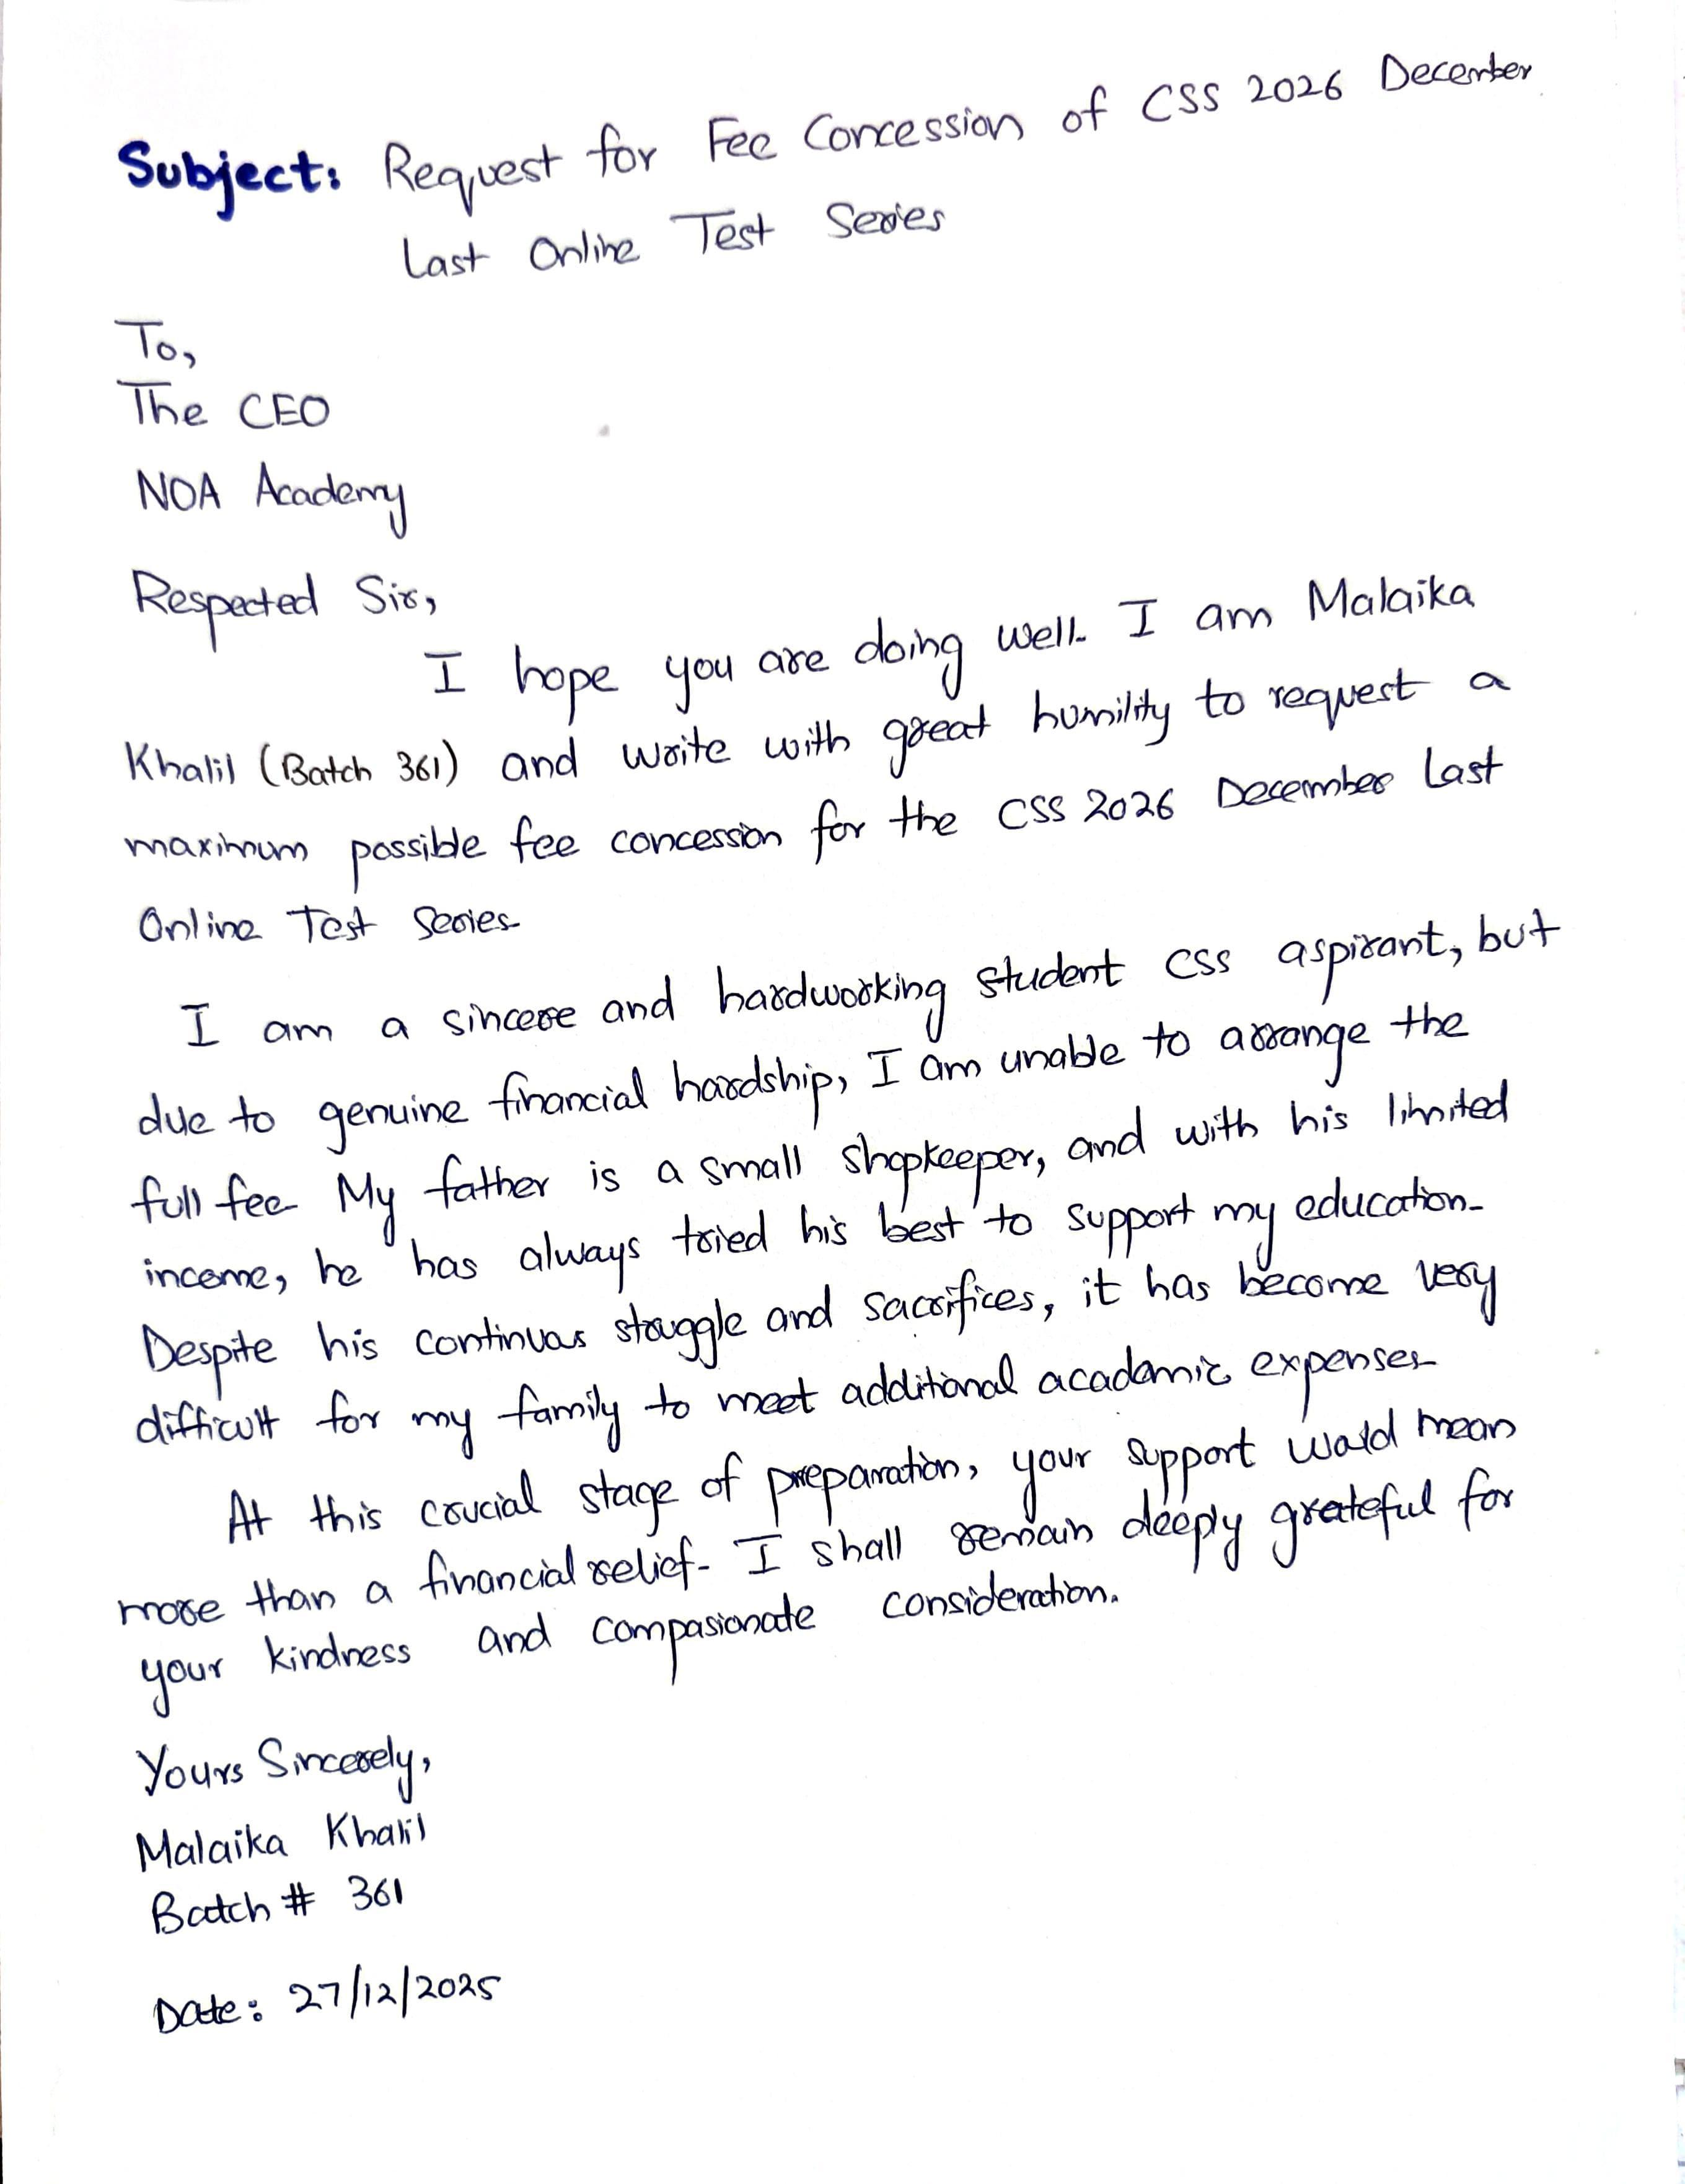 Subject: Request for Fee Concession of CSS 2026 December
Last Online Test Series
To,
The CEO
NOA Academy
Respected Sir,
I hope you are doing well. I am Malaika
Khalil (Batch 361) and write with great humility to request a
maximum possible fee concession for the CSS 2026 December Last
Online Test Series.
I am a sincere and hardworking student CSS aspirant, but
due to genuine financial hardship, I am unable to arrange the
full fee. My father is a small shopkeeper, and with his limited
income, he has always tried his best to support my education.
Despite his continuos struggle and sacrifices, it has become very
difficult for my family to meet additional academic expenses.
At this crucial stage of preparation, your support would mean
more than a financial relief. I shall remain deeply grateful for
your kindness and compasionate consideration.
Yours Sincerely,
Malaika Khalil
Batch # 361
Date: 27/12/2025